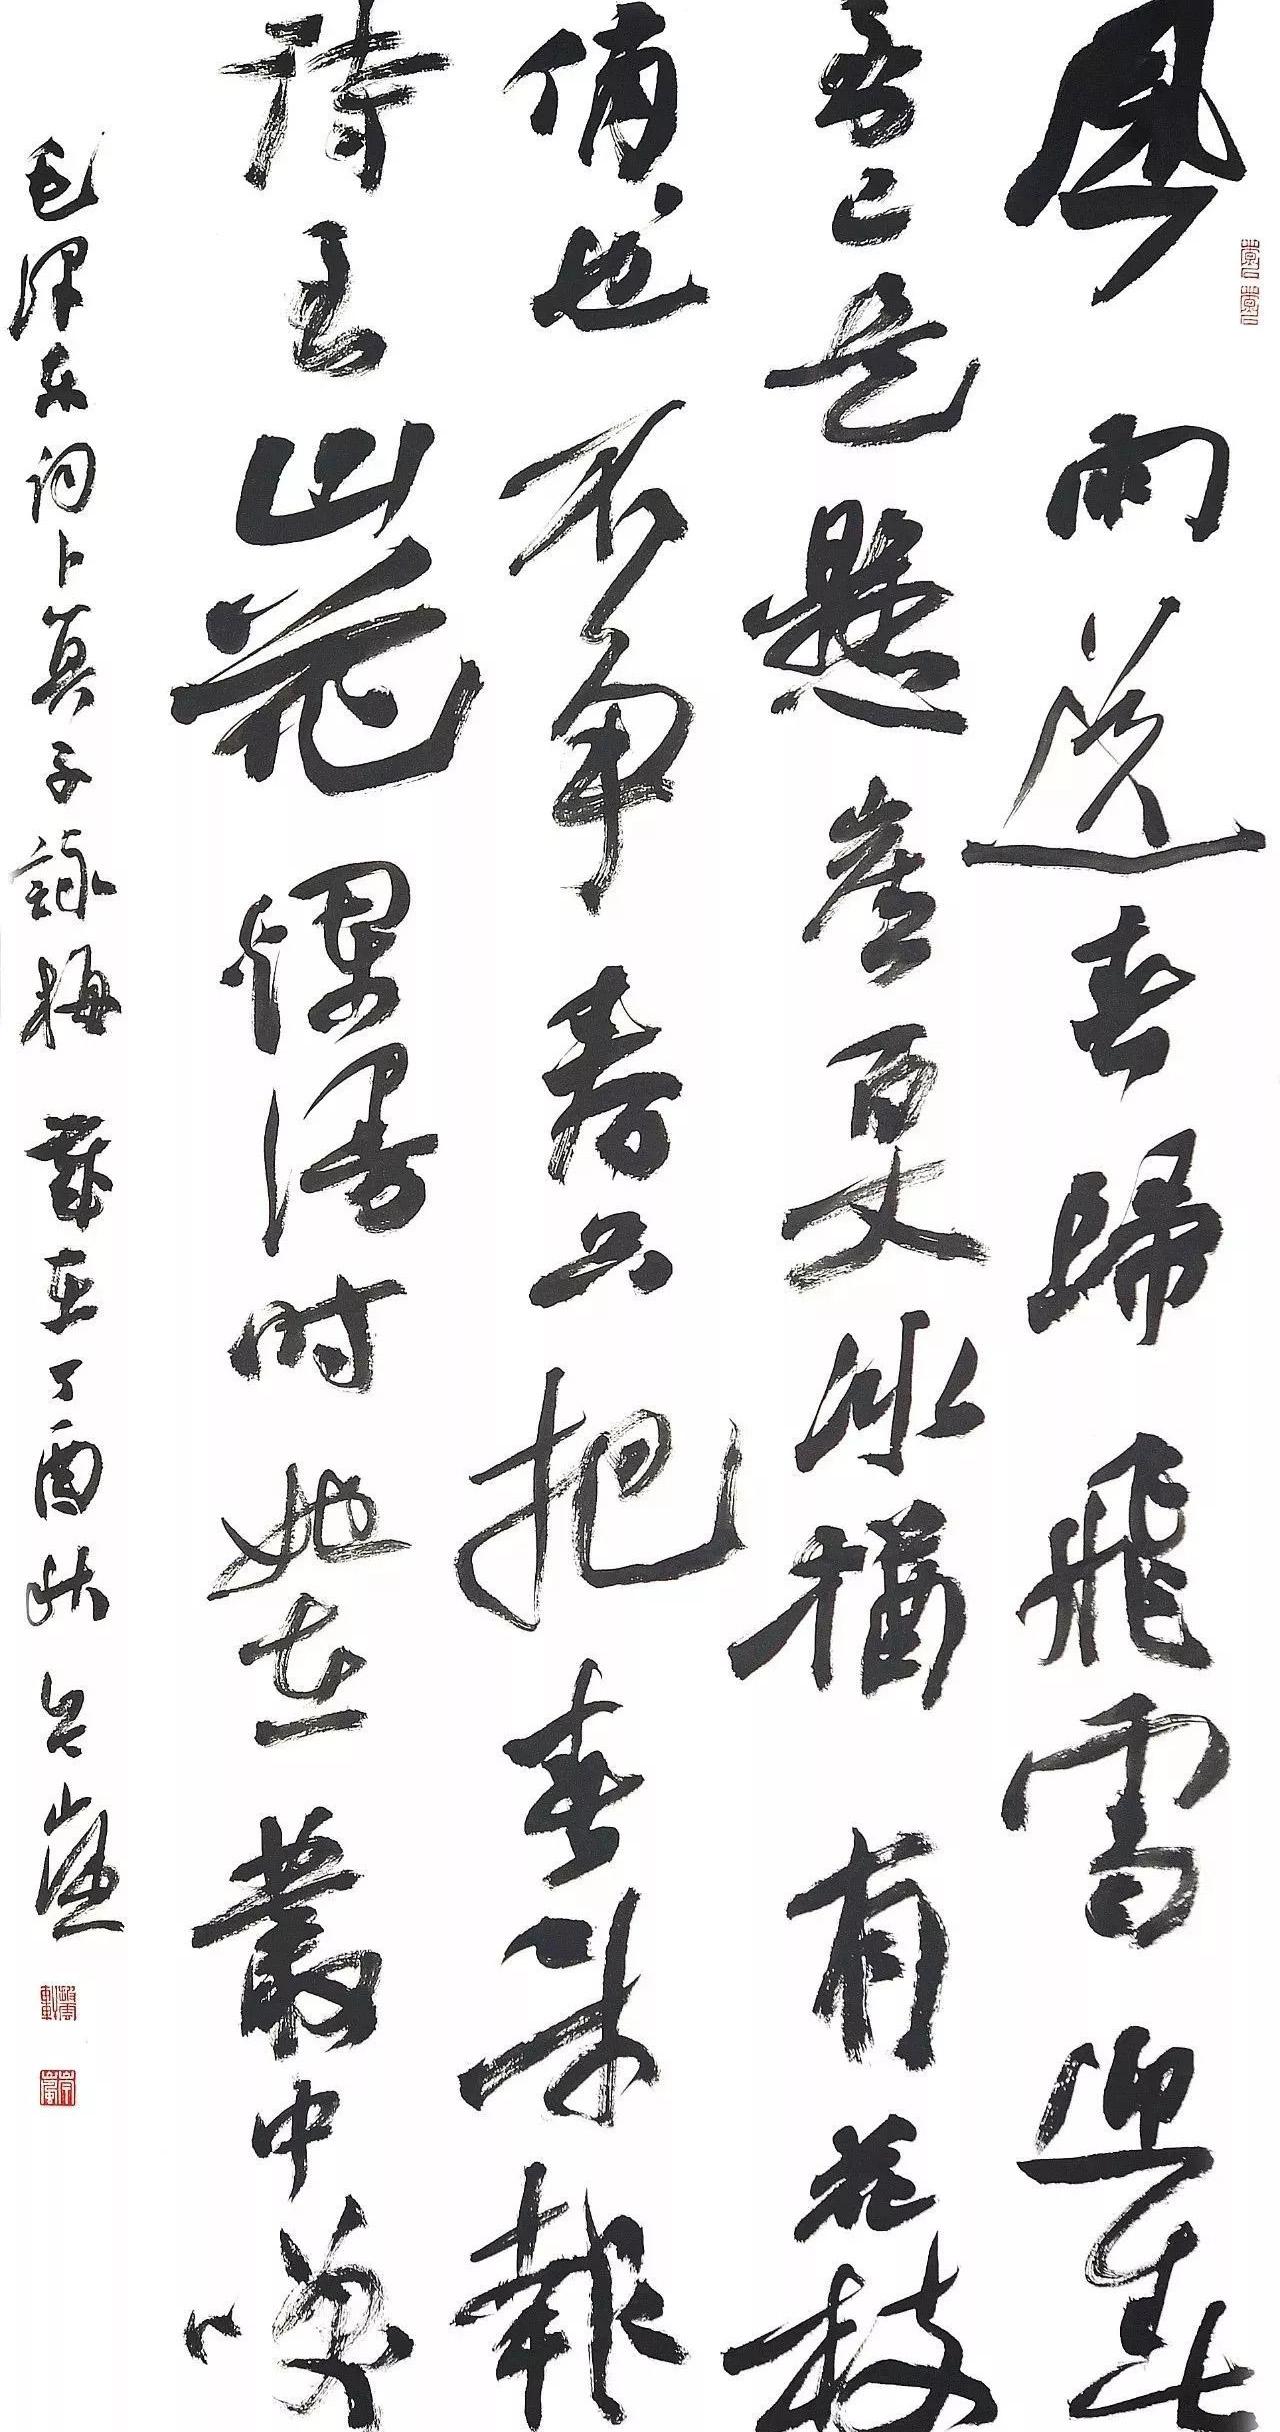 風雨送春歸飛雪迎春
到已是懸崖百丈冰猶有花枝
俏、也不争春只把春来報
待到山花爛漫时她在叢中笑
毛泽东词卜算子詠梅 歲在丁酉秋